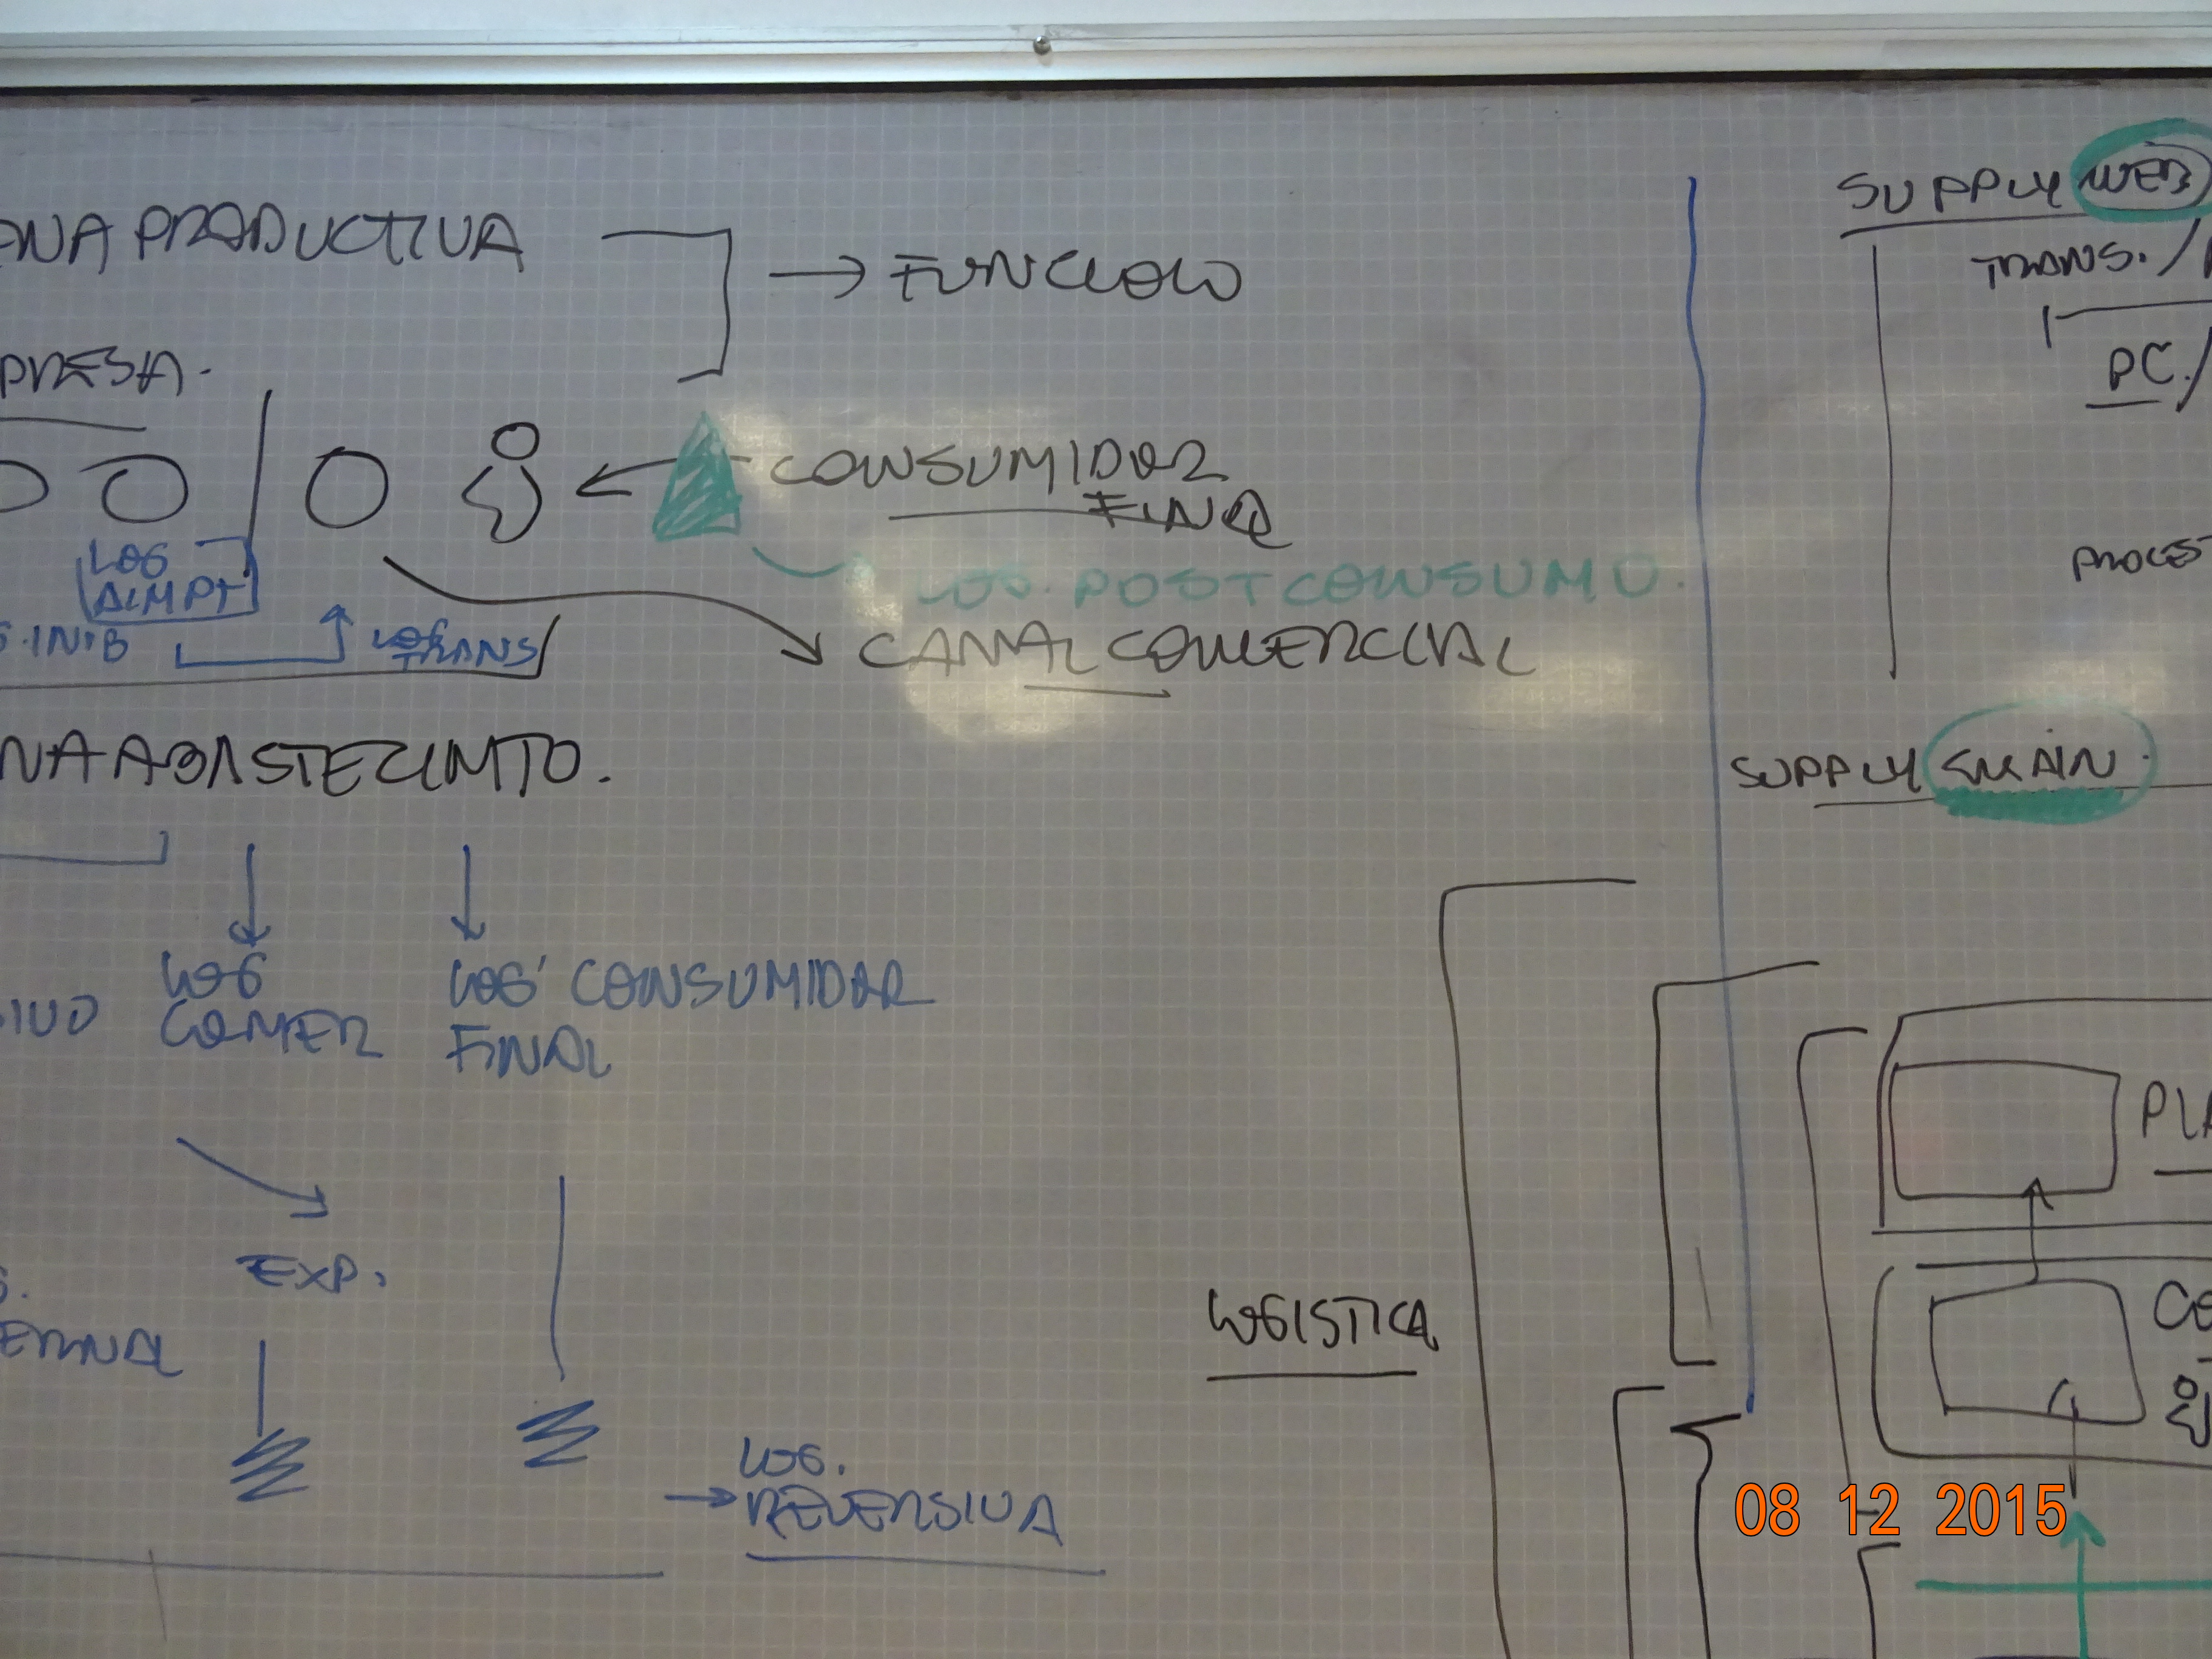 ENA PRODUCTIVA
→ FUNCION
PRESA.
CONSUMIDOR
FINAL
LOG. POSTCONSUMO.
CANAL COMERCIAL
LOG
ALMPT
G. INTB
LOG
TRANS
NA ABASTECIMTO.
LOG
COMER
LOG' CONSUMIDOR
FINAL
EXP.
→ LOG.
REVERSIVA
LOGISTICA
SUPPLY WEB
TRANS. /
PC. /
PROCES
SUPPLY CHAIN.
PLA
CO
08 12 2015